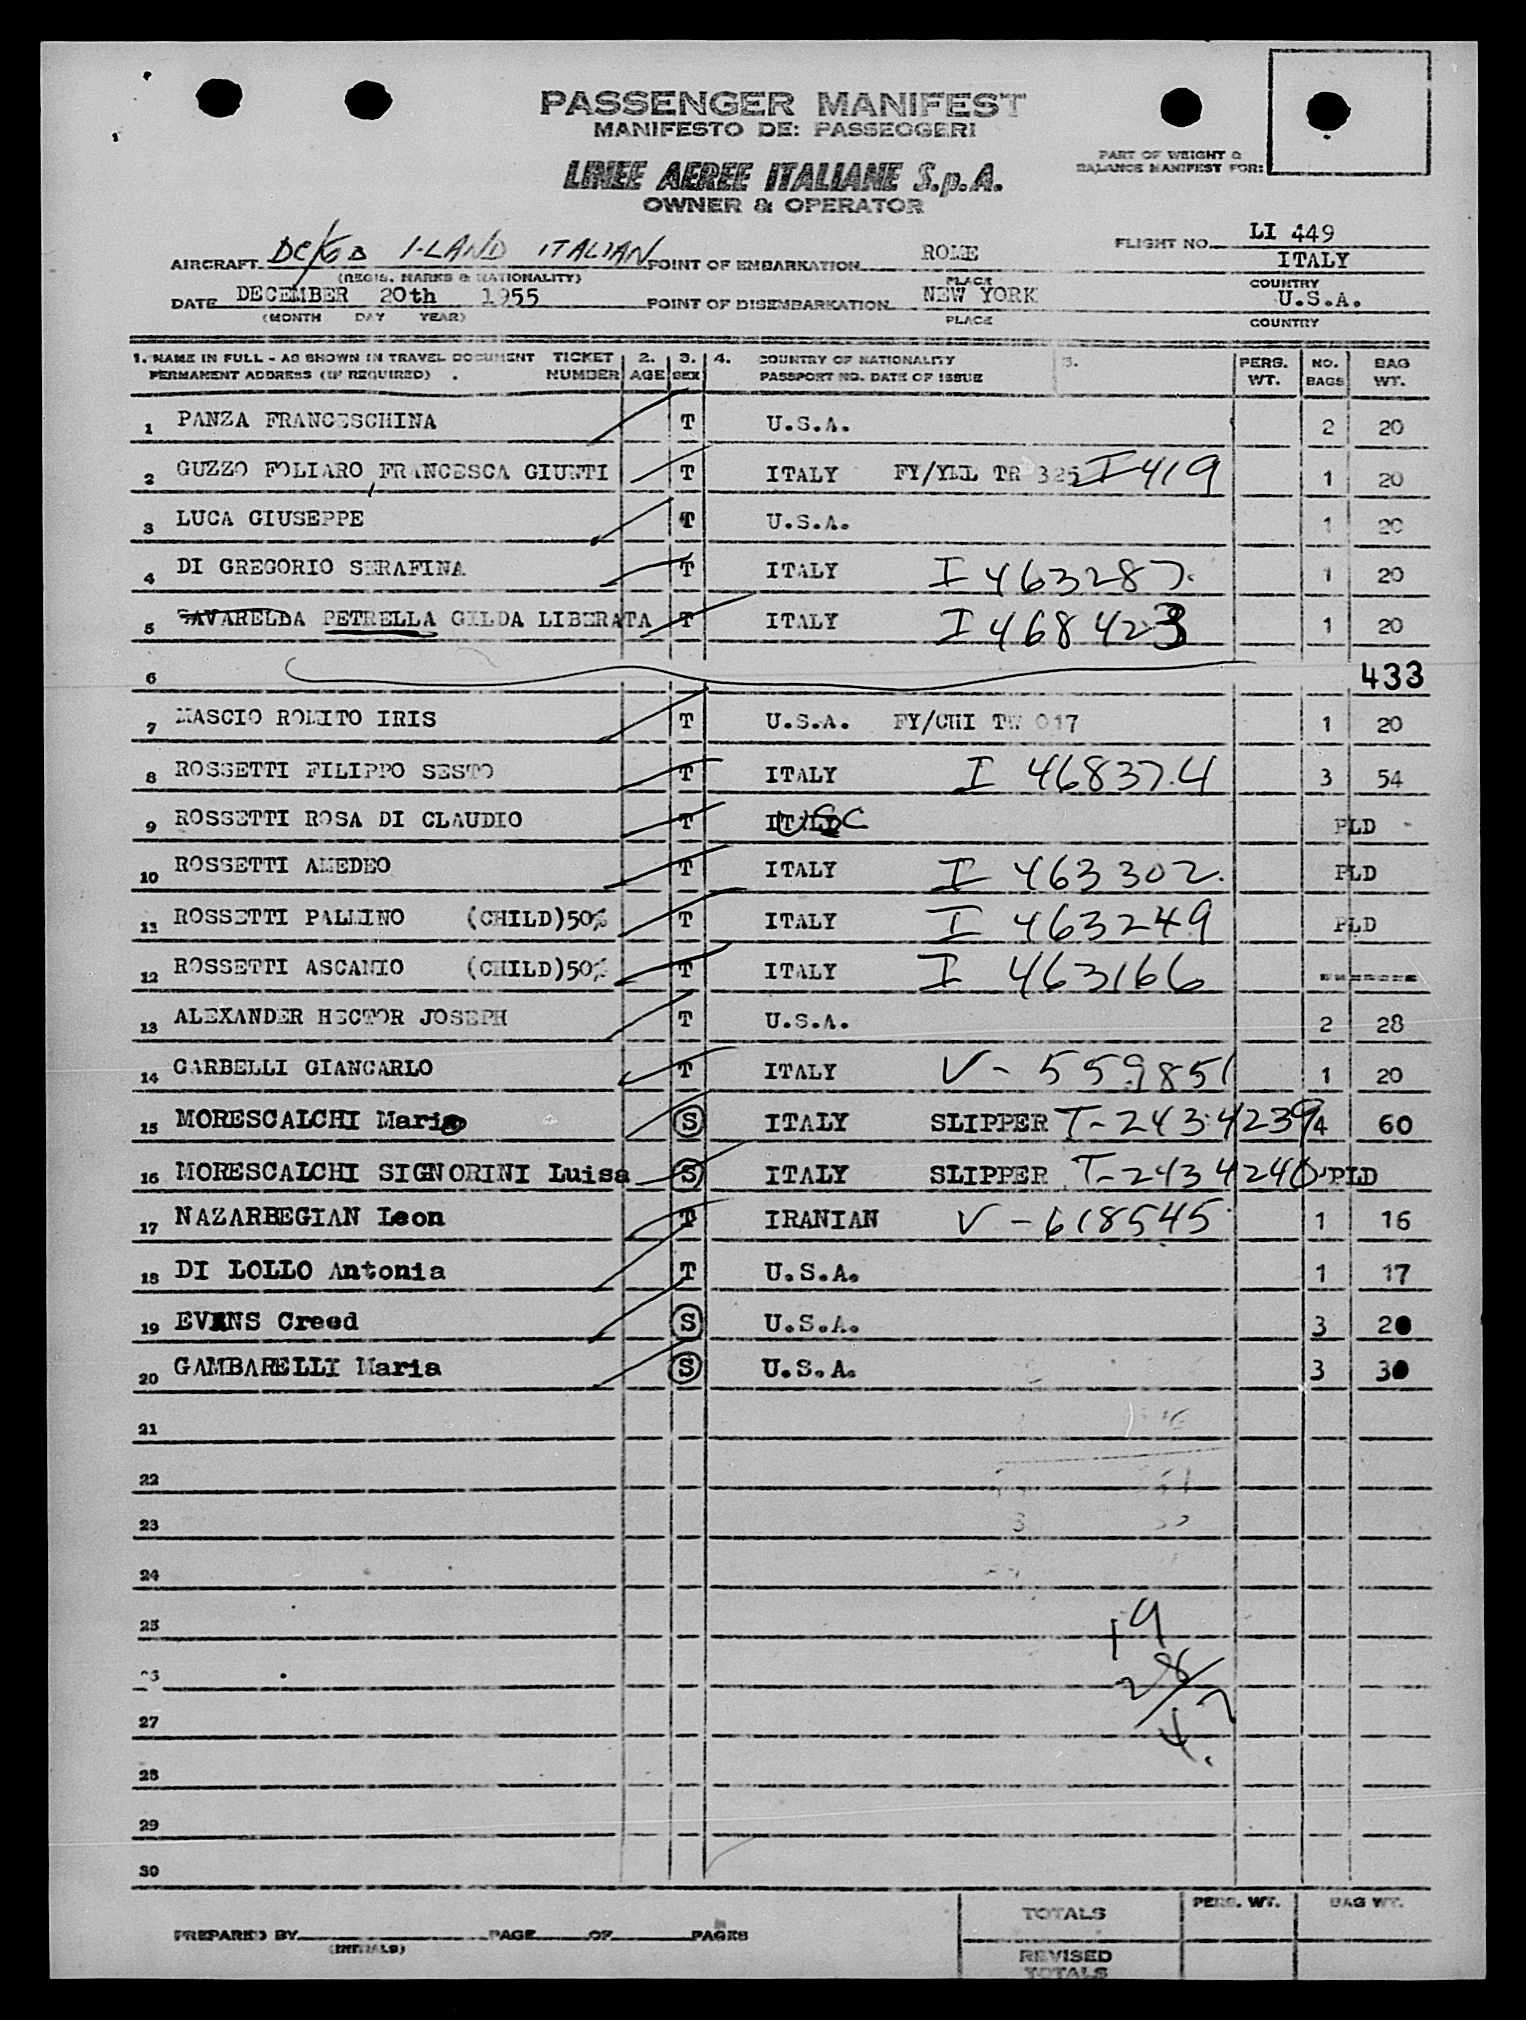 PASSENGER MANIFEST
MANIFESTO DE: PASSEGGERI
LINEE AEREE ITALIANE S.p.A.
OWNER & OPERATOR
PART OF WEIGHT &
BALANCE MANIFEST FOR:
AIRCRAFT DC/6B I-LAND ITALIAN POINT OF EMBARKATION ROME FLIGHT NO. LI 449
ITALY
(REGIS. MARKS & NATIONALITY) PLACE COUNTRY
DATE DECEMBER 20th 1955 POINT OF DISEMBARKATION NEW YORK U.S.A.
(MONTH DAY YEAR) PLACE COUNTRY
1. NAME IN FULL - AS SHOWN IN TRAVEL DOCUMENT TICKET 2. 3. 4. COUNTRY OF NATIONALITY 5. PERS. NO. BAG
PERMANENT ADDRESS (IF REQUIRED) NUMBER AGE SEX PASSPORT NO. DATE OF ISSUE WT. BAGS WT.
1 PANZA FRANCESCHINA T U.S.A. 2 20
2 GUZZO FOLIARO, FRANCESCA GIUNTI T ITALY FY/YUL TR 325 I-419 1 20
3 LUCA GIUSEPPE T U.S.A. 1 20
4 DI GREGORIO SERAFINA T ITALY I 463287. 1 20
5 SAVARELDA PETRELLA GILDA LIBERATA T ITALY I 468423 1 20
6 433
7 MASCIO ROMITO IRIS T U.S.A. FY/CHI TW 017 1 20
8 ROSSETTI FILIPPO SESTO T ITALY I 468374 3 54
9 ROSSETTI ROSA DI CLAUDIO T ITALY USC PLD
10 ROSSETTI AMEDEO T ITALY I 463302. PLD
11 ROSSETTI PALLINO (CHILD)50% T ITALY I 463249 PLD
12 ROSSETTI ASCANIO (CHILD)50% T ITALY I 463166 =======
13 ALEXANDER HECTOR JOSEPH T U.S.A. 2 28
14 GARBELLI GIANCARLO T ITALY V- 559851 1 20
15 MORESCALCHI Mario S ITALY SLIPPER T-2434239 4 60
16 MORESCALCHI SIGNORINI Luisa S ITALY SLIPPER T-2434240 PLD
17 NAZARBEGIAN Leon T IRANIAN V-618545 1 16
18 DI LOLLO Antonia T U.S.A. 1 17
19 EVANS Creed S U.S.A. 3 20
20 GAMBARELLI Maria S U.S.A. 3 30
21
22
23
24
25
19
28
27
47
28
29
30
TOTALS PERS. WT. BAG WT.
PREPARED BY PAGE OF PAGES
(INITIALS)
REVISED
TOTALS